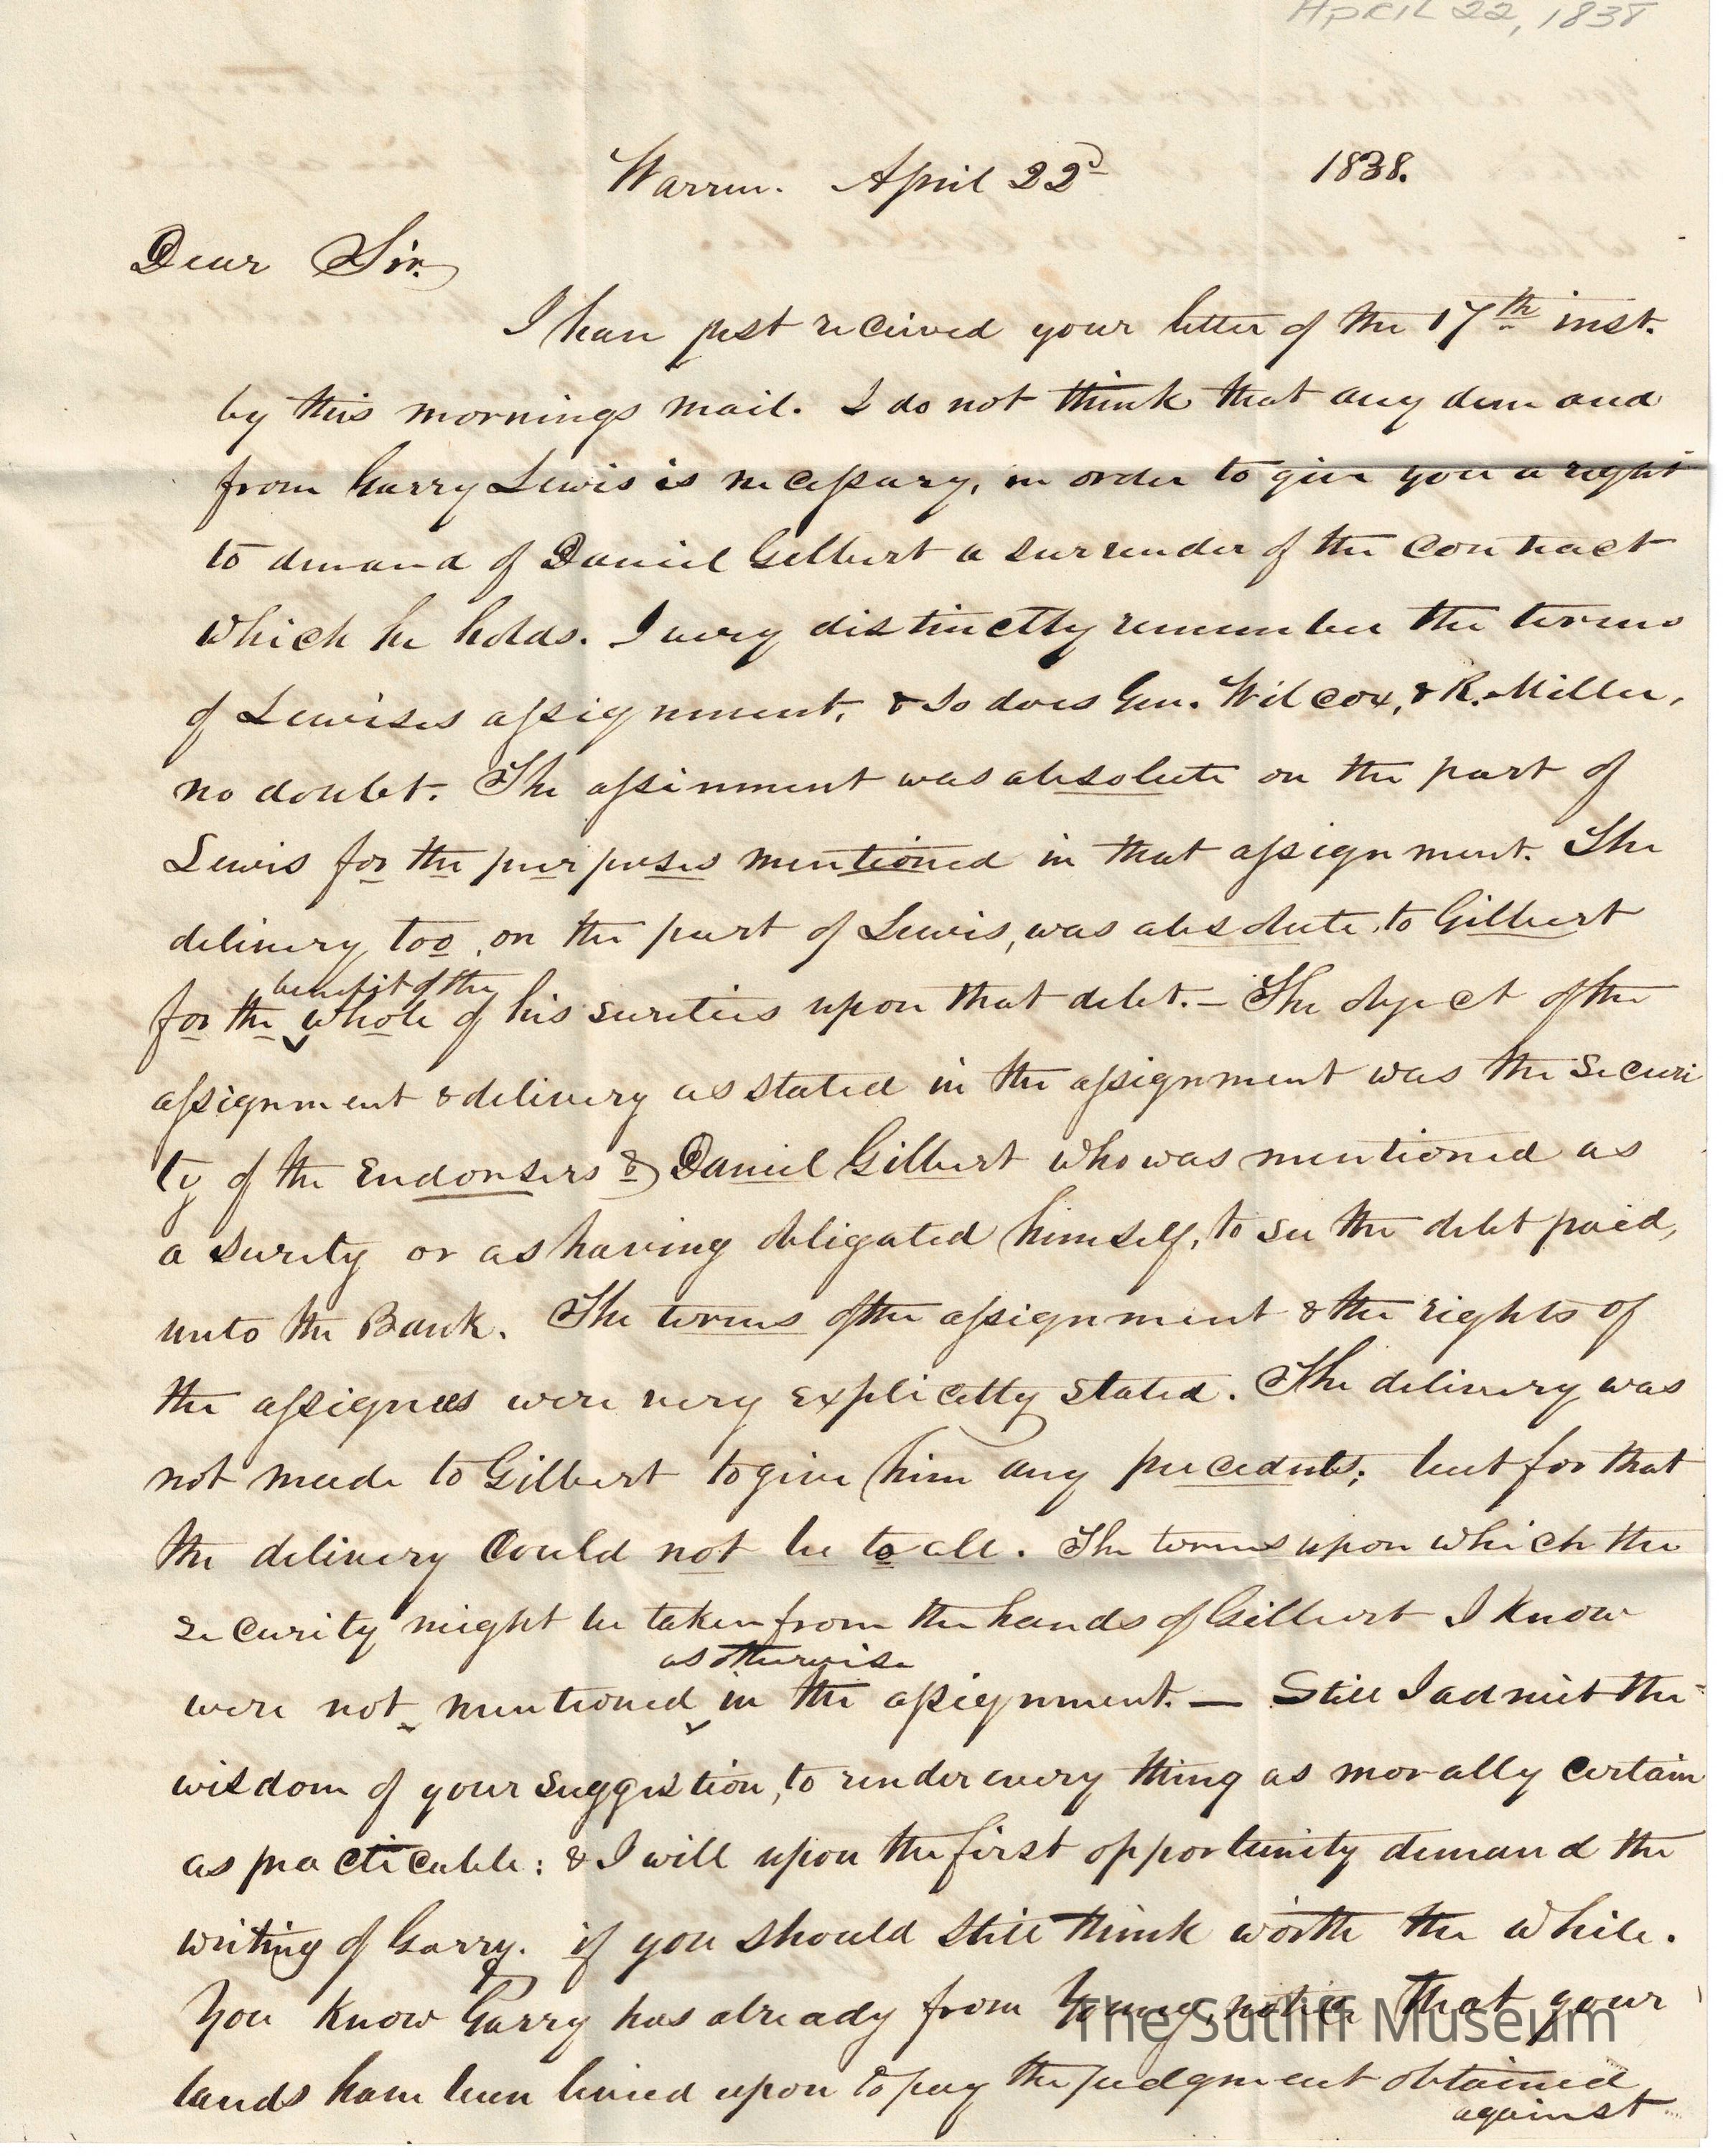 April 22, 1838
Warren. April 22d 1838.
Dear Sir.
I have just received your letter of the 17th inst.
by this mornings mail. I do not think that any demand
from Garry Lewis is necessary, in order to give you a right
to demand of Daniel Gilbert a surrender of the contract
which he holds. I very distinctly remember the terms
of Lewises assignment, & so does Gen. Wilcox, & R. Miller,
no doubt. The assinment was absolute on the part of
Lewis for the purposes mentioned in that assignment. The
delivery too, on the part of Lewis, was absolute, to Gilbert
benefit of the
for the whole of his sureties upon that debt. — The object of the
assignment & delivery as stated in the assignment was the securi
ty of the Endorsers & Daniel Gilbert who was mentioned as
a surety or as having obligated himself, to see the debt paid,
unto the Bank. The terms of the assignment & the rights of
the assignees were very explicitly stated. The delivery was
not made to Gilbert to give him any precedents; but for that
the delivery could not be to all. The terms upon which the
security might be taken from the hands of Gilbert I know
as otherwise
were not mentioned in the assignment. — Still I admit the
wisdom of your suggestion, to render every thing as morally certain
as practicable: & I will upon the first opportunity demand the
writing of Garry. if you should still think worth the while.
You know Garry has already from Young, notice that your
lands have been levied upon to pay the judgment obtained
against
The Sutliff Museum